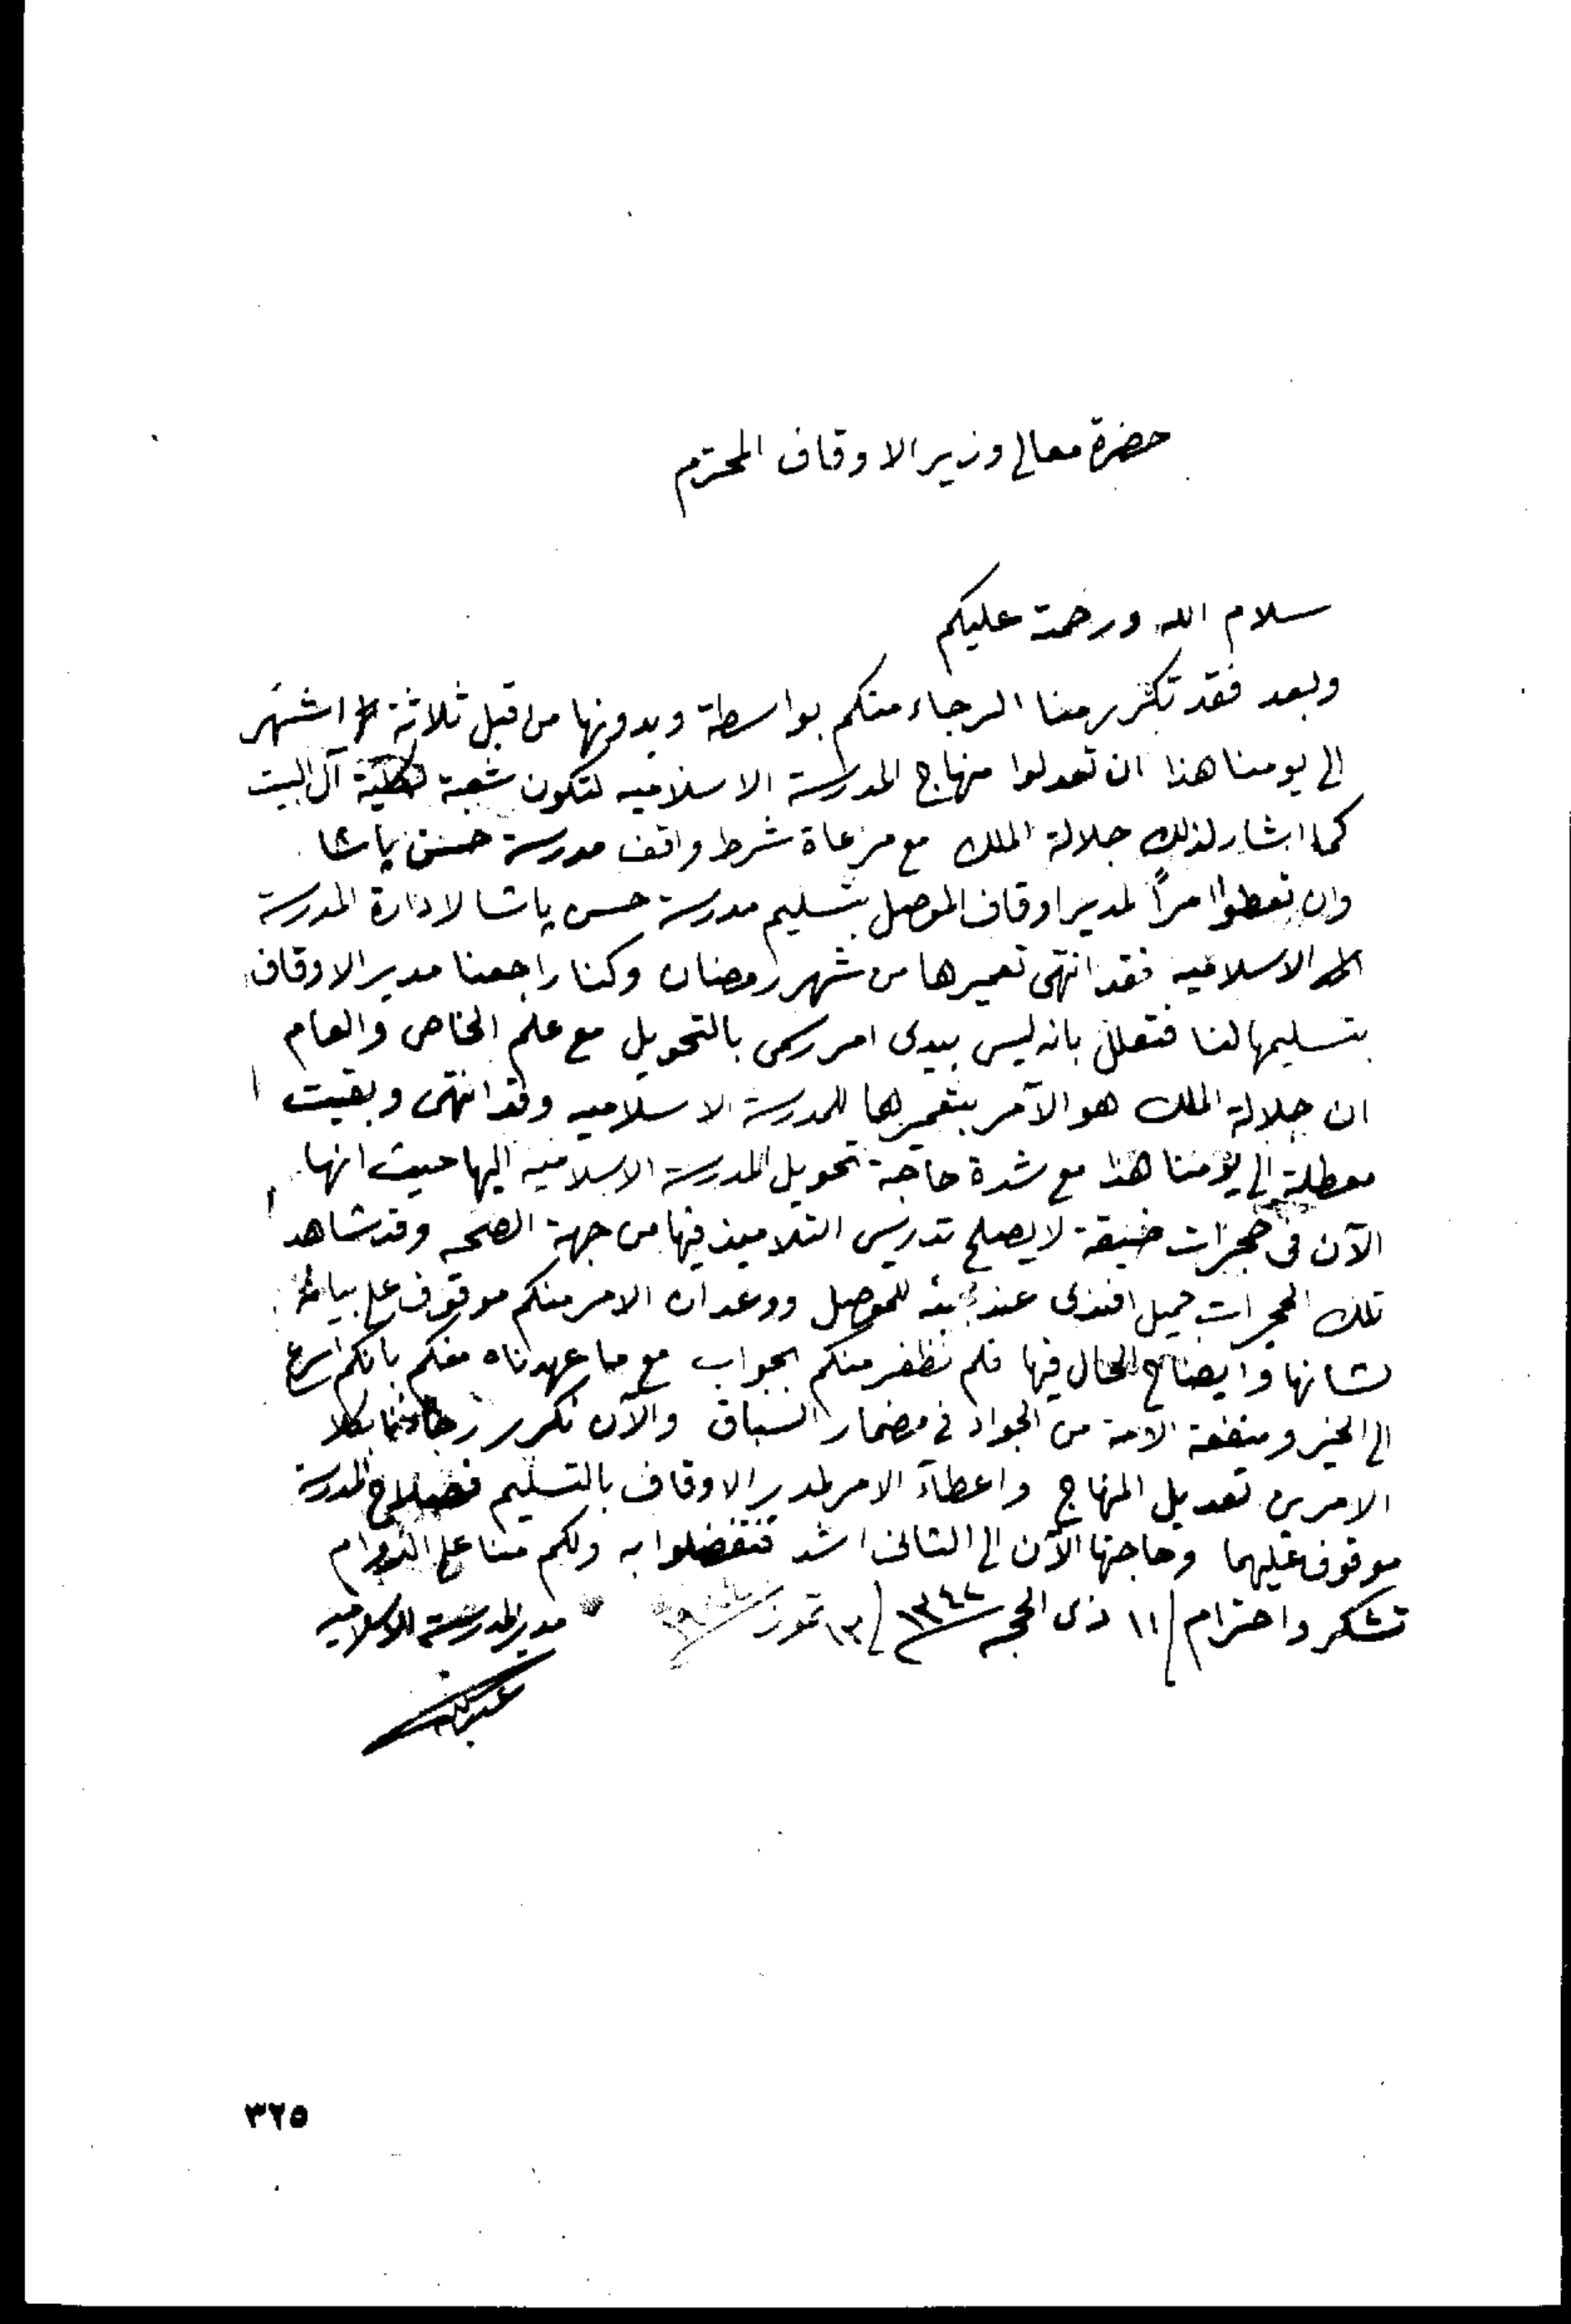 حضرة معالي وزير الاوقاف المحترم
سلام الله ورحمته عليكم
وبعد فقد تكرر منا الرجاء منكم بواسطة وبدونها من قبل ثلاثة اشهر
الى يومنا هذا ان تعدلوا منهاج المدرسة الاسلاميه لتكون شعبة لكلية آل البيت
كما اشار لذلك جلالة الملك مع مرعاة شرط واقف مدرسة حسن پاشا
وان تعطوا امراً لمدير اوقاف الموصل بتسليم مدرسة حسن پاشا لادارة المدرسة
الاسلاميه فقد انتهى تعميرها من شهر رمضان وكنا راجعنا مدير الاوقاف
بتسليمها لنا فتعلل بانه ليس بيدى امر رسمى بالتحويل مع علم الخاص والعام
ان جلالة الملك هو الآمر بتعميرها للمدرسة الاسلاميه وقد انتهى وبقيت
معطلة الى يومنا هذا مع شدة حاجة تحويل المدرسة الاسلاميه اليها حيث انها
الآن فى حجرات ضيقة لا يصلح تدريس التلاميذ فيها من جهة الصحه وقد شاهد
تلك الحجرات جميل افندى عند للموصل ووعد ان الامر منكم موقوف على بيانه
لشانها وايضاح الحال فيها فلم نظفر منكم بجواب مع ما عهدناه منكم بانكم اسرع
الى الخير ومنفعة الامة من الجواد في مضمار السباق والآن نكرر رجاءنا بكلا
الامرين تعديل المنهاج واعطاء الامر لمدير الاوقاف بالتسليم فصلاح المدرسة
موقوف عليهما وحاجتها الآن الى الثانى اشد فتفضلوا به ولكم منا على الدوام
تشكر واحترام / ١١ ذى الحجه ١٣٤٢ / ١٣ تموز مدير المدرسة الاسلاميه
٣٢٥